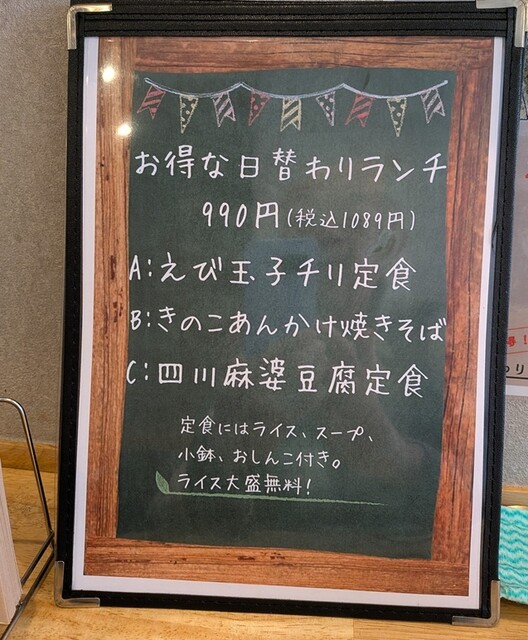 お得な日替わりランチ
990円(税込1089円)
A:えび玉子チリ定食
B:きのこあんかけ焼きそば
C:四川麻婆豆腐定食
定食にはライス、スープ、
小鉢、おしんこ付き。
ライス大盛無料!